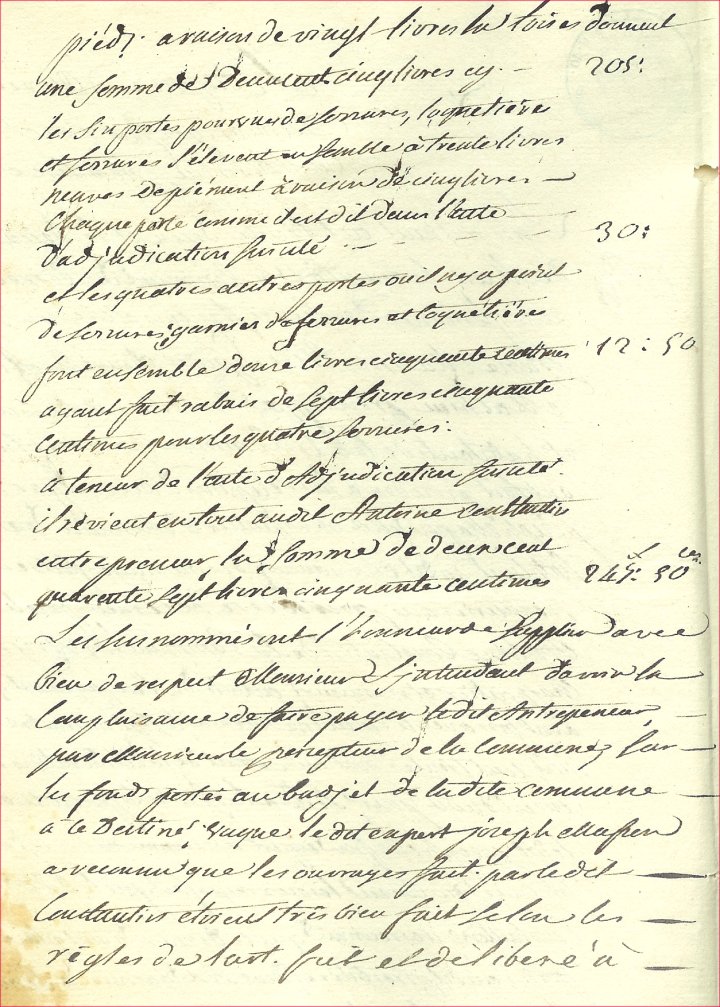 piéds. a raison de vingt livres la toises donnent
une somme de Deuxcent cinq livres cy. — 205:
les six portes pourvues de serrures, loquetière
et ferrures s'élevent ensemble à trente livres
neuves de piémont à raison de cinq livres —
Chaque porte comme il est dit dans l'acte
D'adjudication susdit. — 30:
et les quatres autres portes où il ny a point
de serrures, garnier de ferrures et loquetière
font ensemble douze livres cinquante centimes 12:50
ayant fait rabais de sept livres cinquante
Centimes pour les quatre serrures:
à teneur de l'acte d'Adjudication susdit.
il révient en tout audit Antoine Constantin
entrepreneur la somme de deux cent
quarente sept livres cinquante centimes 247: 50
Les susnommés ont l'honneur de supplier avec
bien de respect Monsieur l'jntendant d'avoir la
Complaisance de faire payer ledit Antrepeneur
par Monsieur le percepteur de la Commune, sur
les fonds portés au budjet de ladite commune
à le Destiné, vuque ledit expert joseph Masson
a reconnu que les ouvrages fait par ledit
Constantin étoient très bien fait selon les
règles de lart. fait et déliberé à